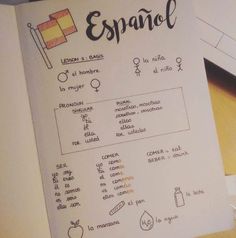 Español
LESSON 1: BASIS
el hombre la niña
la mujer el niño
PRONOUN
SINGULAR PLURAL
yo nosotros, nosotras
tú vosotros, vosotras
él ellos
ella ellas
for. usted for. ustedes
SER COMER COMER = eat
yo soy yo como BEBER = drink
tú eres tú comes
él es él come
somos comemos
sois coméis
ellos son comen
el pan la leche
la manzana H₂O la agua